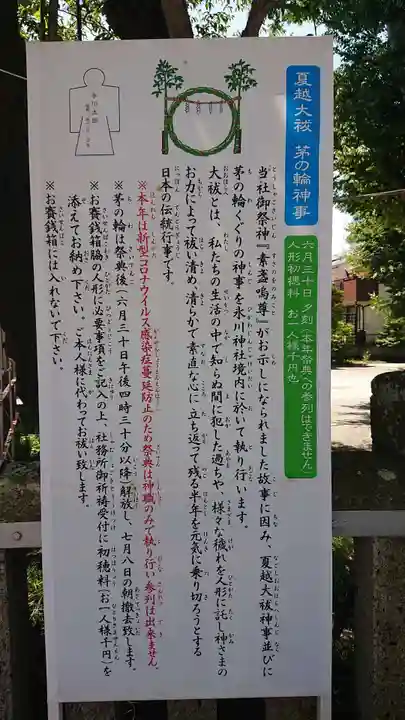 夏越大祓 茅の輪神事
六月三十日 夕刻(本年祭典への参列はできません)
人形初穂料 お一人様千円也
当社御祭神『素盞嗚尊』がお示しになられました故事に因み、夏越大祓神事並びに
茅の輪くぐりの神事を氷川神社境内に於いて執り行います。
大祓とは、私たちの生活の中で知らぬ間に犯した過ちや、様々な穢れを人形に託し神さまの
お力によって祓い清め、清らかで素直な心に立ち返って残る半年を元気に乗り切ろうとする
日本の伝統行事です。
※本年は新型コロナウイルス感染症蔓延防止のため祭典は神職のみで執り行い参列は出来ません。
※茅の輪は祭典後(六月三十日午後四時三十分以降)解放し、七月八日の朝撤去致します。
※お賽銭箱脇の人形に必要事項をご記入の上、社務所御祈祷受付に初穂料(お一人様千円)を
添えてお納め下さい。ご本人様に代わってお祓い致します。
※お賽銭箱には入れないで下さい。